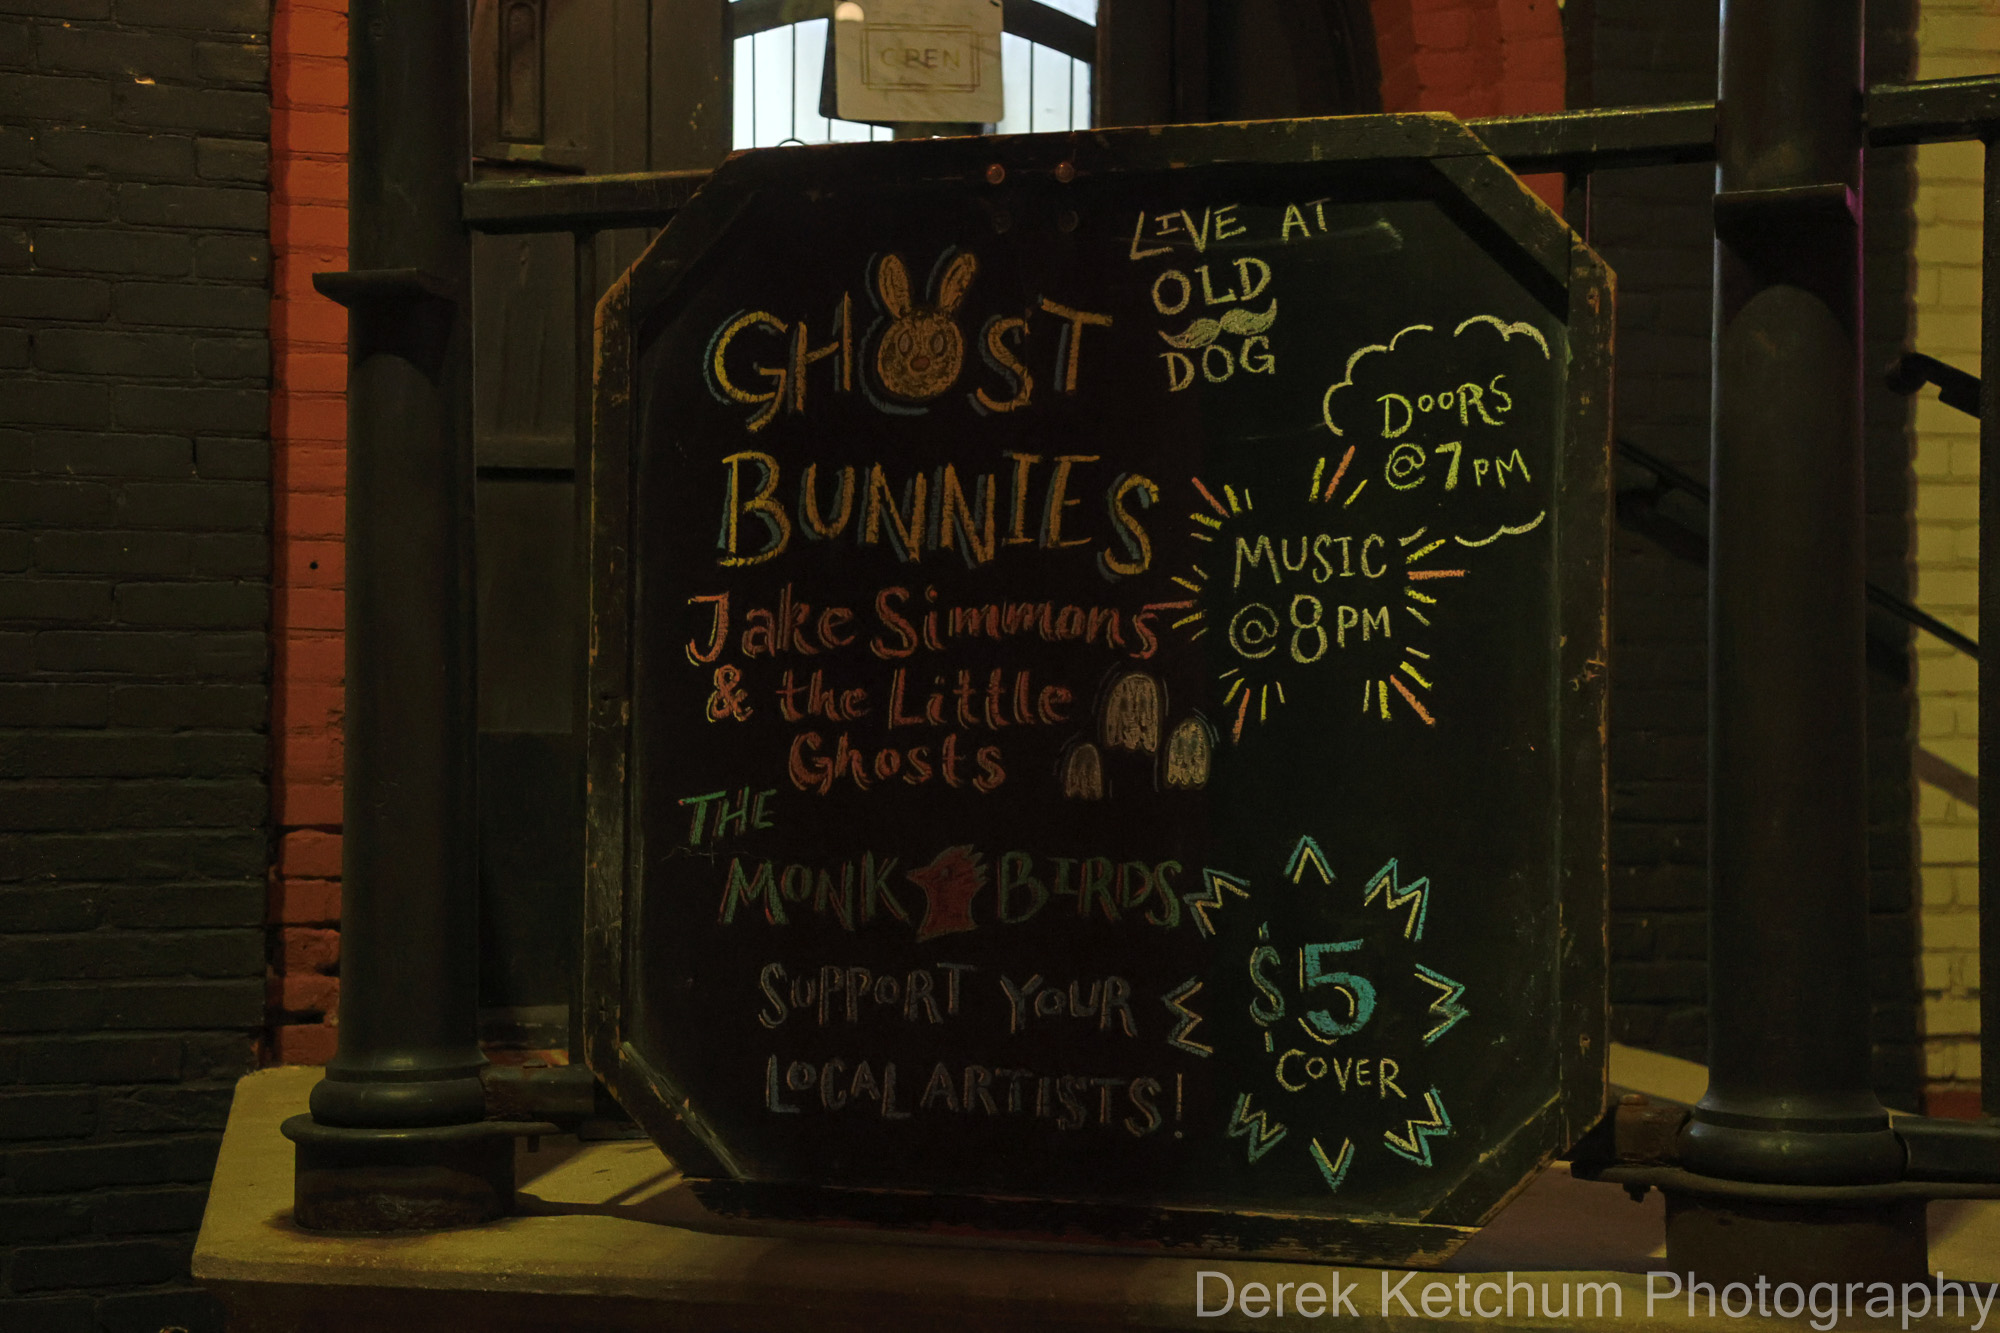 OPEN
LIVE AT
OLD
DOG
GHOST
BUNNIES
DOORS
@ 7PM
MUSIC
@ 8PM
Jake Simmons
& the Little
Ghosts
THE
MONK BIRDS
SUPPORT YOUR
LOCAL ARTISTS!
$5
COVER
Derek Ketchum Photography